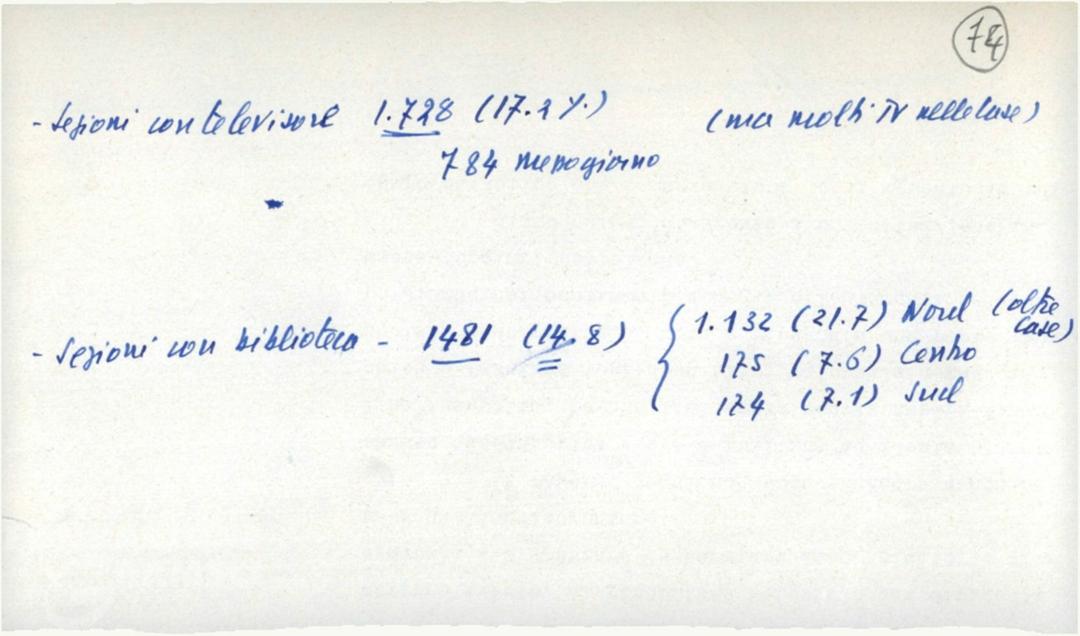 74
- Sezioni con televisore 1.728 (17.2 %) (ma molti TV nelle case)
784 mezzogiorno
- Sezioni con biblioteca - 1481 (14.8) { 1.132 (21.7) Nord (oltre case)
175 (7.6) Centro
174 (7.1) Sud